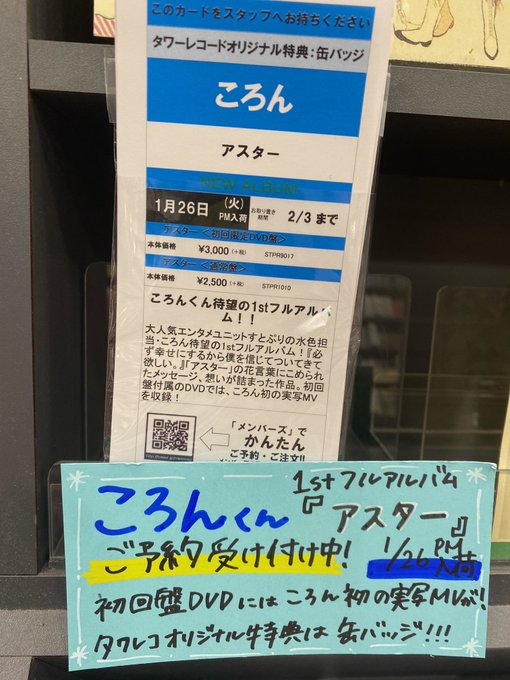 このカードをスタッフへお持ちください
タワーレコードオリジナル特典:缶バッジ
ころん
アスター
NEW ALBUM
1月26日 (火) PM入荷 お取り置き期間 2/3 まで
アスター <初回限定DVD盤>
本体価格 ¥3,000 (+税) STPR9017
アスター <通常盤>
本体価格 ¥2,500 (+税) STPR1010
ころんくん待望の1stフルアルバ
ム!!
大人気エンタメユニットすとぷりの水色担
当・ころん待望の1stフルアルバム!『必
ず幸せにするから僕を信じてついてきて
欲しい。』「アスター」の花言葉にこめられ
たメッセージ、想いが詰まった作品。初回
盤付属のDVDでは、ころん初の実写MV
を収録!
「メンバーズ」で
かんたん
ご予約・ご注文!!
ころんくん 1stフルアルバム
『アスター』
ご予約受け付け中! 1/26 PM入荷
初回盤DVDにはころん初の実写MVが!
タワレコオリジナル特典は缶バッジ!!!